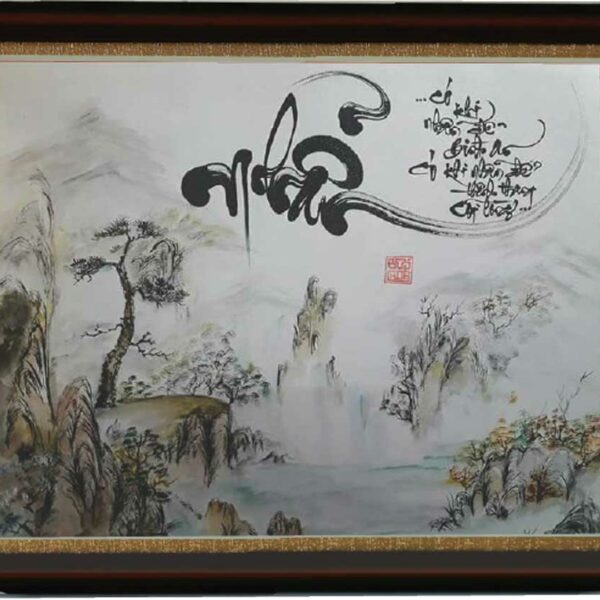 Nhẫn
...có khi
nhẫn để
Bình An
có khi nhẫn để
thênh thang
cõi lòng...